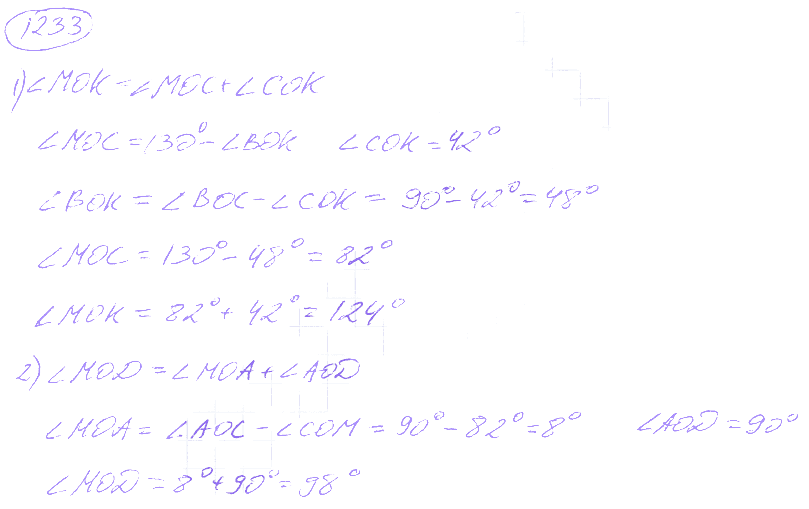 1233
1) ∠MOK = ∠MOC + ∠COK
∠MOC = 130° - ∠BOK ∠COK = 42°
∠BOK = ∠BOC - ∠COK = 90° - 42° = 48°
∠MOC = 130° - 48° = 82°
∠MOK = 82° + 42° = 124°
2) ∠MOD = ∠MOA + ∠AOD
∠MOA = ∠AOC - ∠COM = 90° - 82° = 8° ∠AOD = 90°
∠MOD = 8° + 90° = 98°